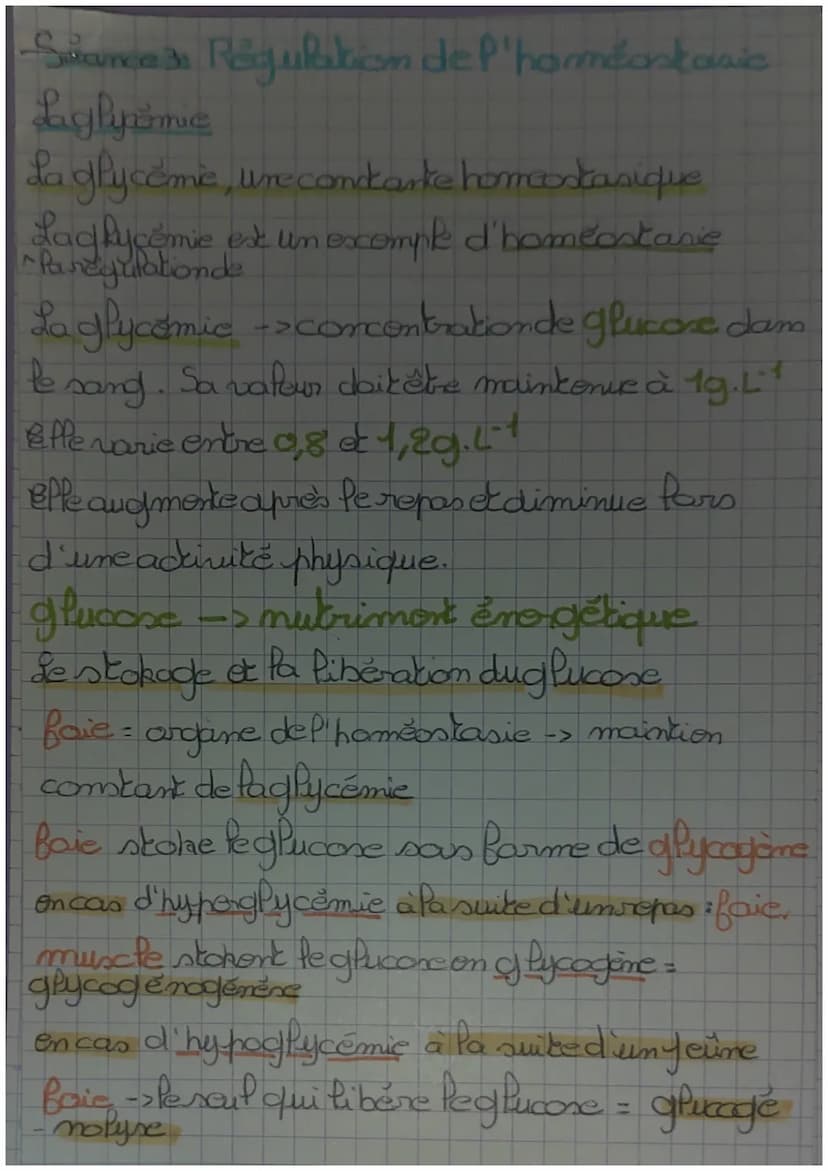 Séance 3: Régulation de l'homéostasie
La glycémie
La glycémie, une constante homéostasique
La glycémie est un exemple d'homéostasie
^ la régulation de
La glycémie -> concentration de glucose dans
le sang. Sa valeur doit être maintenue à 1g.L⁻¹
Elle varie entre 0,8 et 1,2g.L⁻¹
Elle augmente après le repas et diminue lors
d'une activité physique.
glucose -> nutriment énergétique
Le stokage et la libération du glucose
Foie = organe de l'homéostasie -> maintien
constant de la glycémie
Foie stoke le glucose sous forme de glycogène
en cas d'hyperglycémie à la suite d'un repas : foie,
muscle stokent le glucose en glycogène =
glycogénogénèse
en cas d'hypoglycémie à la suite d'un jeûne
Foie -> le seul qui libère le glucose = glucogé
-nolyse